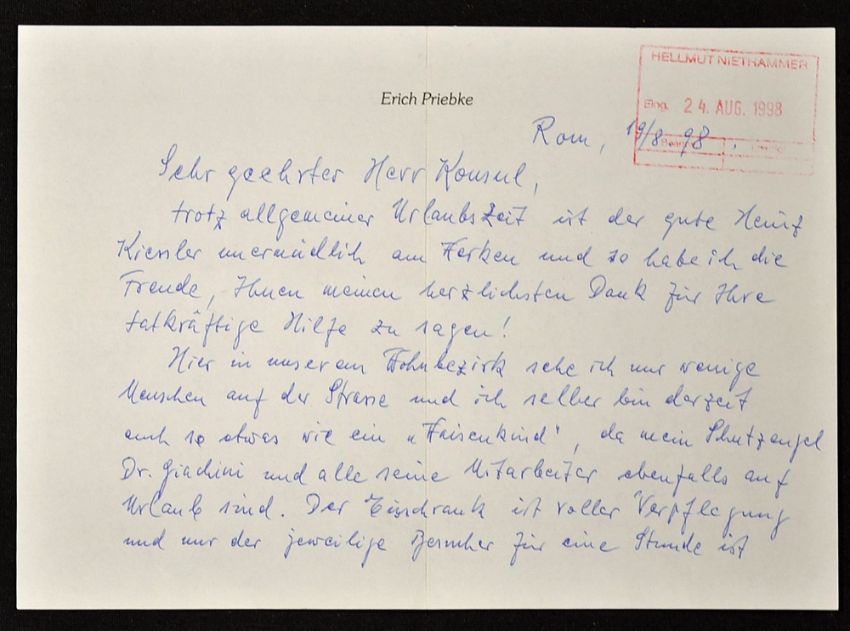 HELLMUT NIETHAMMER
Erich Priebke
Eing. 24. AUG. 1998
Rom, 19/8 98.
Sehr geehrter Herr Konsul,
trotz allgemeiner Urlaubszeit ist der gute Heinz
Kiessler unermüdlich am Werken und so habe ich die
Freude, Ihnen meinen herzlichsten Dank für Ihre
tatkräftige Hilfe zu sagen!
Hier in unserem Wohnbezirk sehe ich nur wenige
Menschen auf der Strasse und ich selber bin derzeit
auch so etwas wie ein „Waisenkind", da mein Schutzengel
Dr. Giachini und alle seine Mitarbeiter ebenfalls auf
Urlaub sind. Der Eisschrank ist voller Verpflegung
und nur der jeweilige Besucher für eine Stunde ist